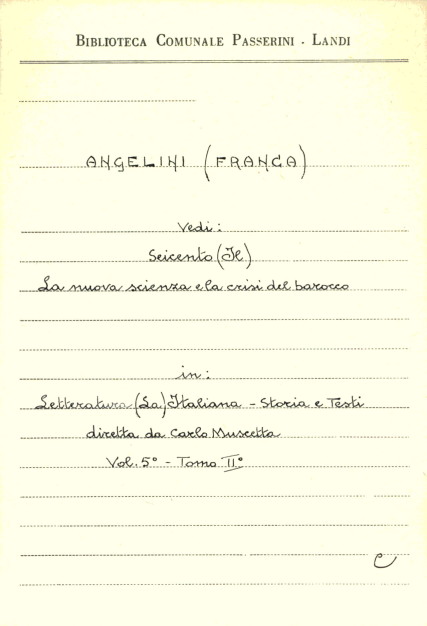 BIBLIOTECA COMUNALE PASSERINI - LANDI
ANGELINI (FRANCA)
Vedi:
Seicento (Il)
La nuova scienza e la crisi del barocco
in:
Letteratura (La) Italiana - Storia e Testi
diretta da Carlo Muscetta
Vol. 5° - Tomo II°
C